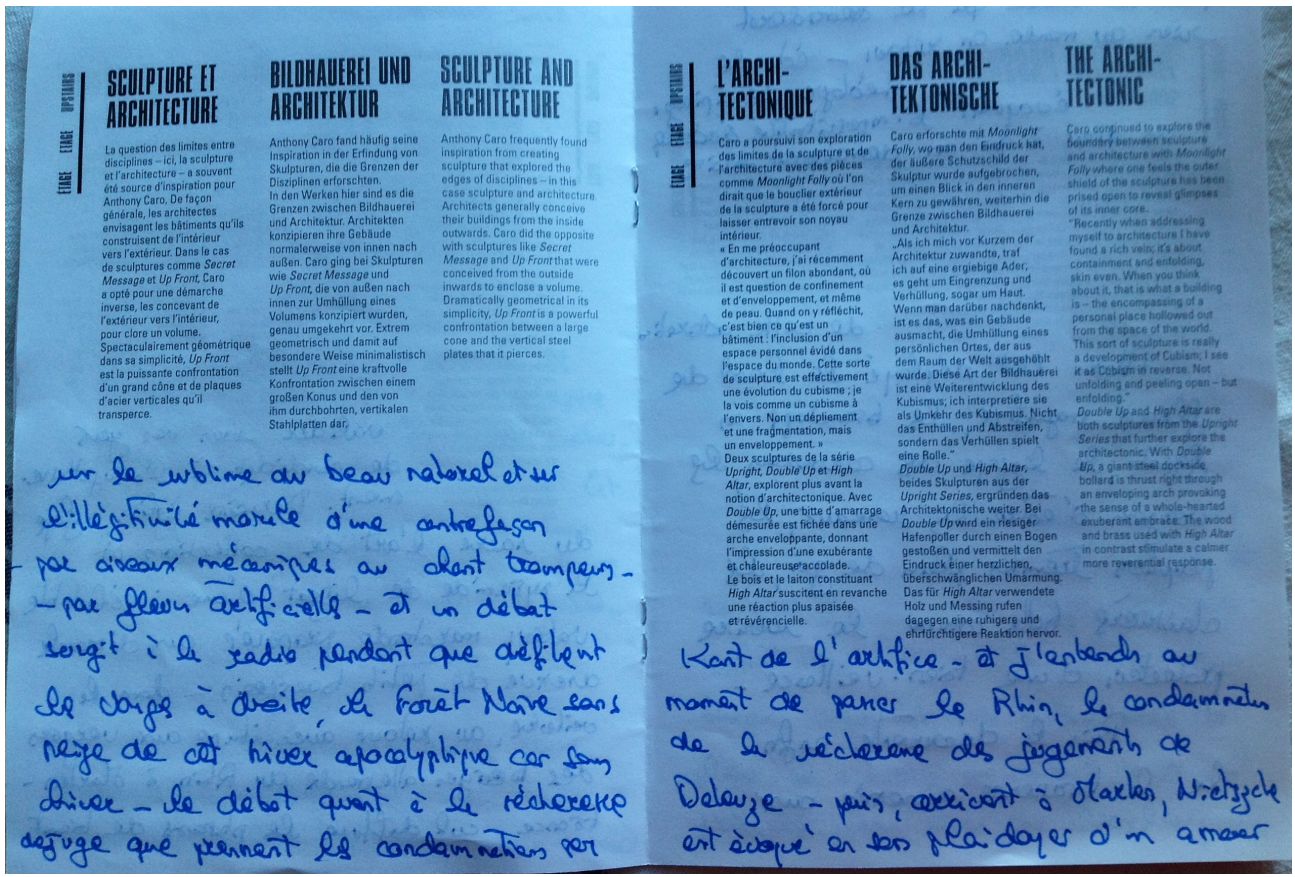 ETAGE ETAGE UPSTAIRS
SCULPTURE ET
ARCHITECTURE
La question des limites entre
disciplines – ici, la sculpture
et l'architecture – a souvent
été source d'inspiration pour
Anthony Caro. De façon
générale, les architectes
envisagent les bâtiments qu'ils
construisent de l'intérieur
vers l'extérieur. Dans le cas
de sculptures comme Secret
Message et Up Front, Caro
a opté pour une démarche
inverse, les concevant de
l'extérieur vers l'intérieur,
pour clore un volume.
Spectaculairement géométrique
dans sa simplicité, Up Front
est la puissante confrontation
d'un grand cône et de plaques
d'acier verticales qu'il
transperce.
BILDHAUEREI UND
ARCHITEKTUR
Anthony Caro fand häufig seine
Inspiration in der Erfindung von
Skulpturen, die die Grenzen der
Disziplinen erforschten.
In den Werken hier sind es die
Grenzen zwischen Bildhauerei
und Architektur. Architekten
konzipieren ihre Gebäude
normalerweise von innen nach
außen. Caro ging bei Skulpturen
wie Secret Message und
Up Front, die von außen nach
innen zur Umhüllung eines
Volumens konzipiert wurden,
genau umgekehrt vor. Extrem
geometrisch und damit auf
besondere Weise minimalistisch
stellt Up Front eine kraftvolle
Konfrontation zwischen einem
großen Konus und den von
ihm durchbohrten, vertikalen
Stahlplatten dar.
SCULPTURE AND
ARCHITECTURE
Anthony Caro frequently found
inspiration from creating
sculpture that explored the
edges of disciplines – in this
case sculpture and architecture.
Architects generally conceive
their buildings from the inside
outwards. Caro did the opposite
with sculptures like Secret
Message and Up Front that were
conceived from the outside
inwards to enclose a volume.
Dramatically geometrical in its
simplicity, Up Front is a powerful
confrontation between a large
cone and the vertical steel
plates that it pierces.
sur le sublime du beau naturel et sur
l'illégitimité morale d'une contrefaçon
par oiseaux mécaniques au chant trompeurs –
– par fleurs artificielles – et un débat
surgit à la radio pendant que défilent
les Vosges à droite, la Forêt Noire sans
neige de cet hiver apocalyptique car sans
hiver – le débat quant à la sécheresse
de juge que prennent les condamnations par
ETAGE ETAGE UPSTAIRS
L'ARCHI-
TECTONIQUE
Caro a poursuivi son exploration
des limites de la sculpture et de
l'architecture avec des pièces
comme Moonlight Folly où l'on
dirait que le bouclier extérieur
de la sculpture a été forcé pour
laisser entrevoir son noyau
intérieur.
« En me préoccupant
d'architecture, j'ai récemment
découvert un filon abondant, où
il est question de confinement
et d'enveloppement, et même
de peau. Quand on y réfléchit,
c'est bien ce qu'est un
bâtiment : l'inclusion d'un
espace personnel évidé dans
l'espace du monde. Cette sorte
de sculpture est effectivement
une évolution du cubisme ; je
la vois comme un cubisme à
l'envers. Non un dépliement
et une fragmentation, mais
un enveloppement. »
Deux sculptures de la série
Upright, Double Up et High
Altar, explorent plus avant la
notion d'architectonique. Avec
Double Up, une bitte d'amarrage
démesurée est fichée dans une
arche enveloppante, donnant
l'impression d'une exubérante
et chaleureuse accolade.
Le bois et le laiton constituant
High Altar suscitent en revanche
une réaction plus apaisée
et révérencielle.
DAS ARCHI-
TEKTONISCHE
Caro erforschte mit Moonlight
Folly, wo man den Eindruck hat,
der äußere Schutzschild der
Skulptur wurde aufgebrochen,
um einen Blick in den inneren
Kern zu gewähren, weiterhin die
Grenze zwischen Bildhauerei
und Architektur.
„Als ich mich vor Kurzem der
Architektur zuwandte, traf
ich auf eine ergiebige Ader,
es geht um Eingrenzung und
Verhüllung, sogar um Haut.
Wenn man darüber nachdenkt,
ist es das, was ein Gebäude
ausmacht, die Umhüllung eines
persönlichen Ortes, der aus
dem Raum der Welt ausgehöhlt
wurde. Diese Art der Bildhauerei
ist eine Weiterentwicklung des
Kubismus; ich interpretiere sie
als Umkehr des Kubismus. Nicht
das Enthüllen und Abstreifen,
sondern das Verhüllen spielt
eine Rolle."
Double Up und High Altar,
beides Skulpturen aus der
Upright Series, ergründen das
Architektonische weiter. Bei
Double Up wird ein riesiger
Hafenpoller durch einen Bogen
gestoßen und vermittelt den
Eindruck einer herzlichen,
überschwänglichen Umarmung.
Das für High Altar verwendete
Holz und Messing rufen
dagegen eine ruhigere und
ehrfürchtigere Reaktion hervor.
THE ARCHI-
TECTONIC
Caro continued to explore the
boundary between sculpture
and architecture with Moonlight
Folly where one feels the outer
shield of the sculpture has been
prised open to reveal glimpses
of its inner core.
"Recently when addressing
myself to architecture I have
found a rich vein; it's about
containment and enfolding,
skin even. When you think
about it, that is what a building
is – the encompassing of a
personal place hollowed out
from the space of the world.
This sort of sculpture is really
a development of Cubism; I see
it as Cubism in reverse. Not
unfolding and peeling open – but
enfolding."
Double Up and High Altar are
both sculptures from the Upright
Series that further explore the
architectonic. With Double
Up, a giant steel dockside
bollard is thrust right through
an enveloping arch provoking
the sense of a whole-hearted
exuberant embrace. The wood
and brass used with High Altar
in contrast stimulate a calmer
more reverential response.
Kant de l'artifice – et j'entends au
moment de passer le Rhin, la condamnation
de la sécheresse des jugements de
Deleuze – puis, arrivant à Marlen, Nietzsche
est évoqué en son plaidoyer d'un amour